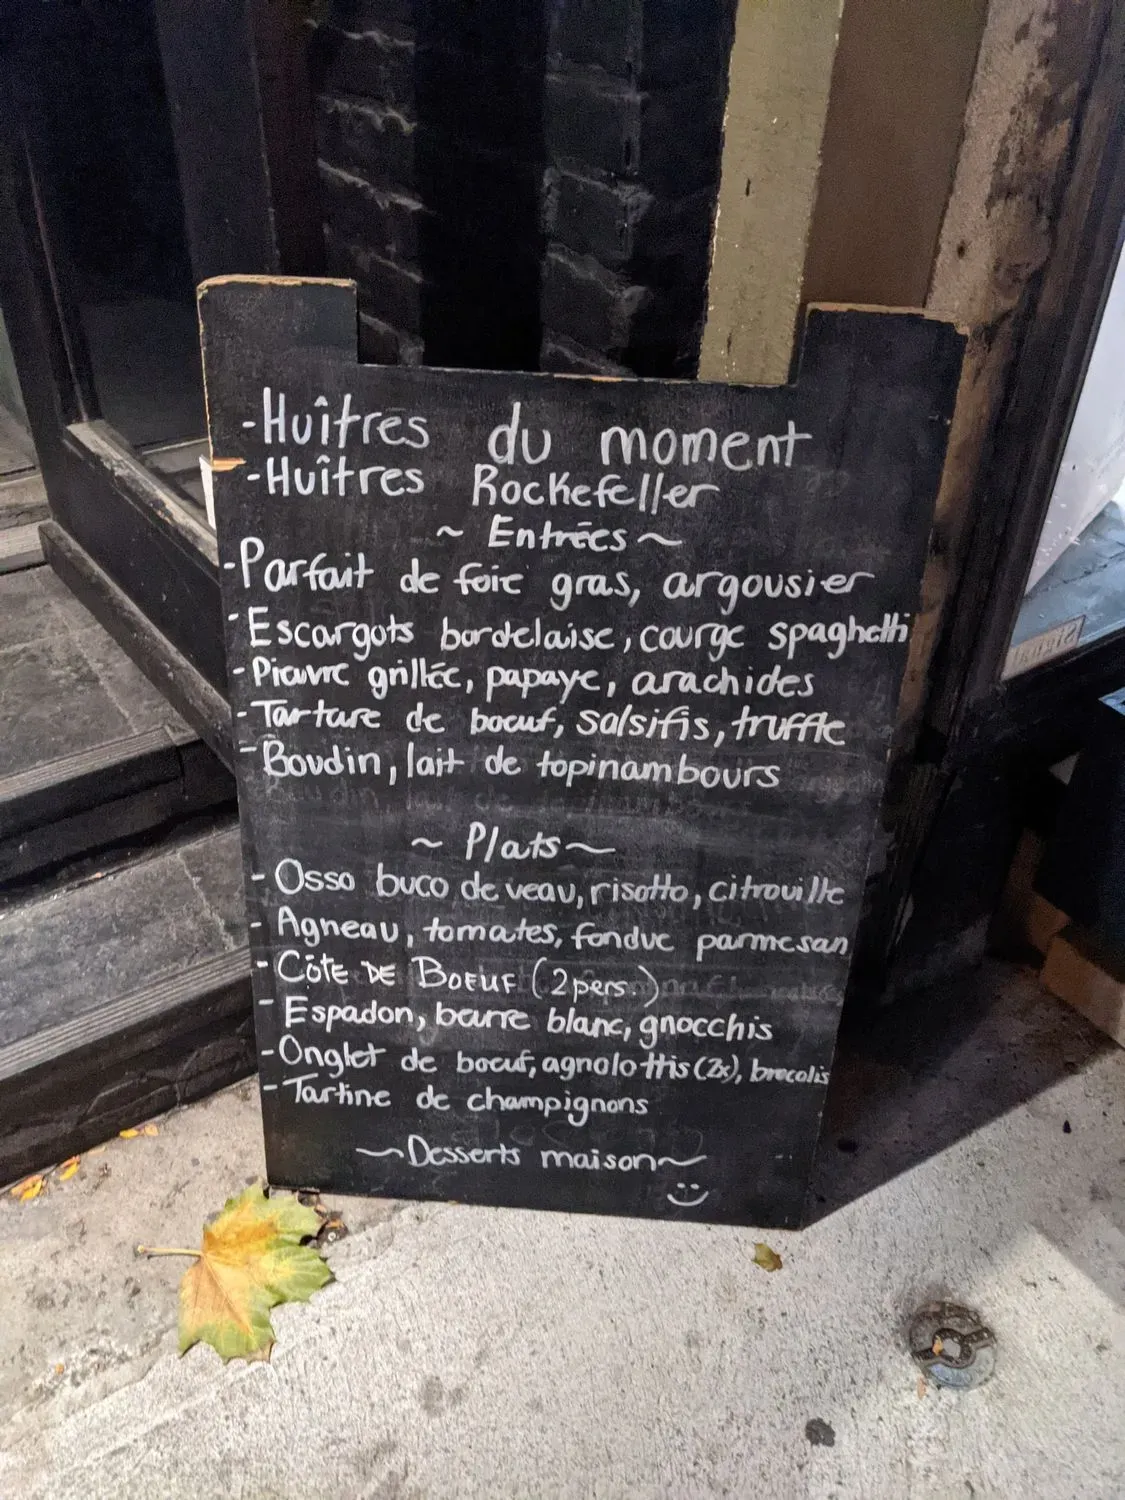 -Huîtres du moment
-Huîtres Rockefeller
~ Entrées ~
-Parfait de foie gras, argousier
-Escargots bordelaise, courge spaghetti
-Pieuvre grillée, papaye, arachides
-Tartare de boeuf, salsifis, truffle
-Boudin, lait de topinambours
~ Plats ~
- Osso buco de veau, risotto, citrouille
- Agneau, tomates, fondue parmesan
- Côte DE BOEUF (2 pers.)
- Espadon, beurre blanc, gnocchis
-Onglet de boeuf, agnolottis (2x), brocolis
-Tartine de champignons
~Desserts maison~